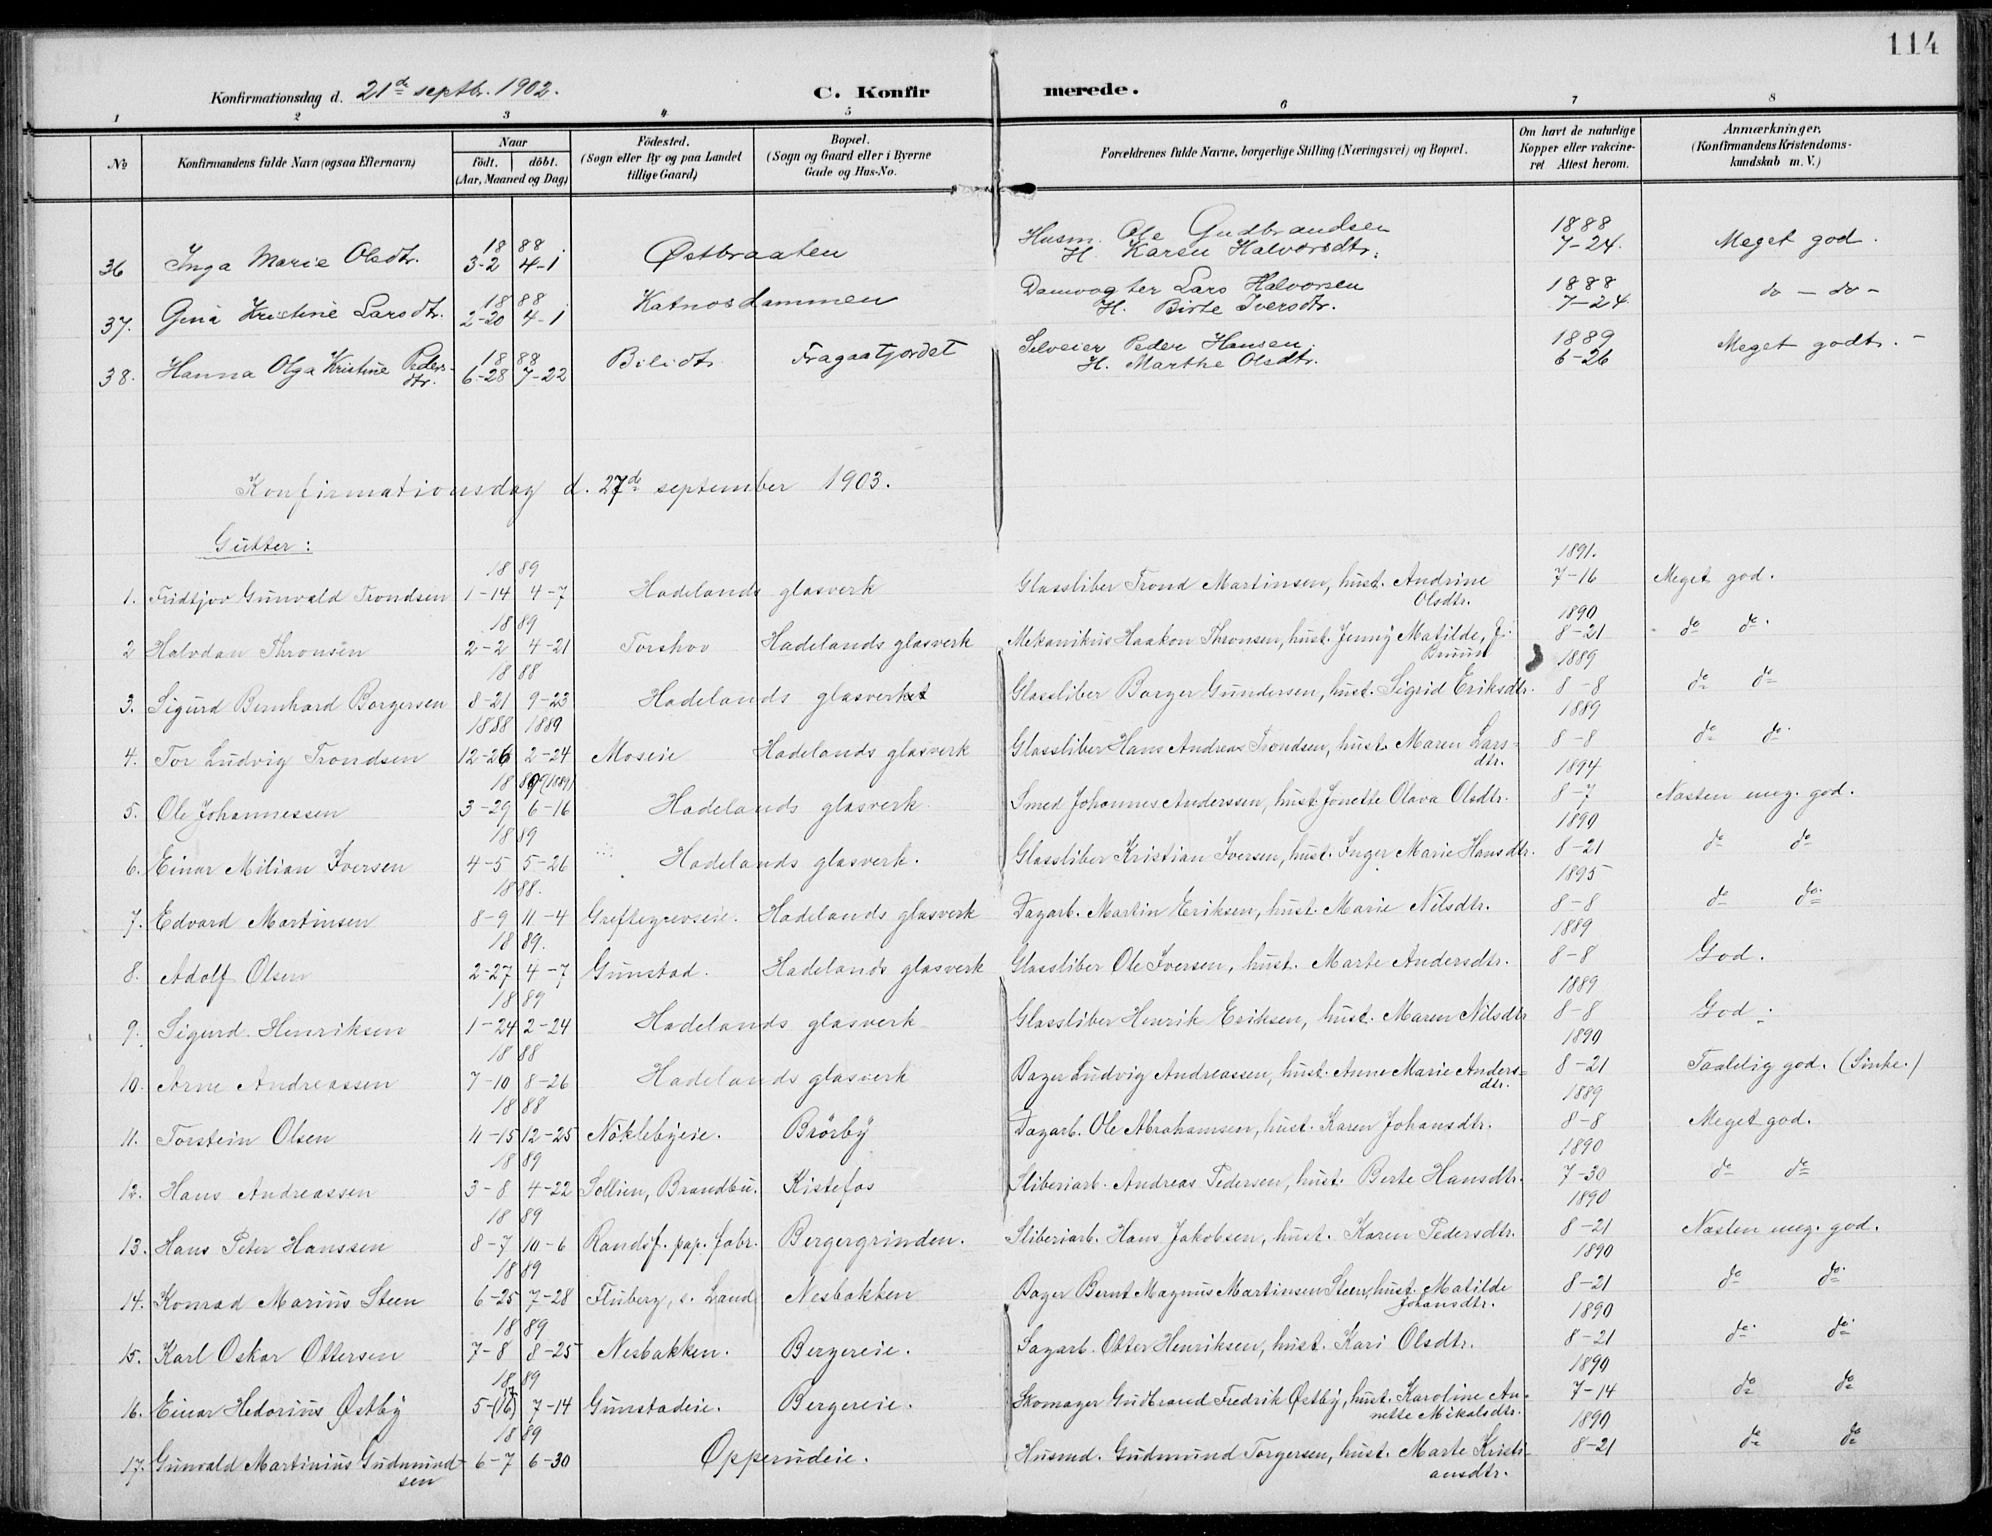 114
Konfirmationsdag d. 21de septbr. 1902. C. Konfirmerede.
1 2 3 4 5 6 7 8
No Konfirmandens fulde Navn (ogsaa Efternavn) Naar födt. döbt. (Aar, Maaned og Dag) Födested. (Sogn eller By og paa Landet tillige Gaard) Bopæl. (Sogn og Gaard eller i Byerne Gade og Hus-No. Forældrenes fulde Navne, borgerlige Stilling (Næringsvei) og Bopæl. Om havt de naturlige Kopper eller vakcineret Attest herom. Anmærkninger. (Konfirmandens Kristendomskundskab m. V.)
36 Inga Marie Olsdtr. 1888 3-2 4-1 Østbraaten Husm. Ole Gudbrandsen H. Karen Halvorsdtr. 1888 7-24. Meget god.
37. Gina Kristine Larsdtr. 1888 2-20 4-1 Katnosdammen Damvogter Lars Halvorsen H. Birte Iversdtr. 1888 7-24 do - do -
38. Hanna Olga Kristine Pedersdtr. 1888 6-28 7-22 Bilidt Fragaatjordet Selveier Peder Hansen H. Marthe Olsdtr. 1889 6-26 Meget godt. -
Konfirmationsdag d. 27de september 1903.
Gutter:
1. Fridtjov Gunvald Trondsen 1889 1-14 4-7 Hadelands glasverk Glassliber Trond Martinsen, hust. Andrine Olsdtr. 1891. 7-16 Meget god.
2 Halvdan Thronsen 1889 2-2 4-21 Torshov Hadelands glasverk Mekanikus Haakon Thronsen, hust. Jenny Matilde, f. Bruus 1890 8-21 do do
3. Sigurd Bernhard Borgersen 1888 8-21 9-23 Hadelands glasverket Glassliber Borger Gundersen, hust. Sigrid Eriksdtr. 1889 8-8 do do
4. Tor Ludvig Trondsen 1888 1889 12-26 2-24 Moseie Hadelands glasverk Glassliber Hans Andreas Trondsen, hust. Maren Larsdtr. 1889 8-8 do do
5. Ole Johannessen 1889 (1889) 3-29 6-16 Hadelands glasverk Smed Johannes Anderssen, hust. Jonette Olava Olsdtr. 1894 8-7 Næsten meg. god.
6. Einar Milian Iversen 1889 4-5 5-26 Hadelands glasverk. Glassliber Kristian Iversen, hust. Inger Marie Hansdtr. 1890 8-21 do do
7. Edvard Martinsen 1888. 8-9 11-4 Greftegreveie. Hadelands glasverk Dagarb. Martin Eriksen, hust. Marie Nilsdtr. 1895 8-8 do do
8. Adolf Olsen 1889. 2-27 4-7 Gunstad. Hadelands glasverk Glassliber Ole Iversen, hust. Marte Andersdtr. 1889 8-8 God.
9. Sigurd Henriksen 1889 1-24 2-24 Hadelands glasverk Glassliber Henrik Eriksen, hust. Maren Nilsdtr 1889 8-8 God.
10. Arne Andreassen 1888 7-10 8-26 Hadelands glasverk Bager Ludvig Andreassen, hust. Anne Marie Andersdtr. 1890 8-21 Taalelig god. (Sinke.)
11. Torstein Olsen 1888 11-15 12-25 Nøklebyeie. Brörby Dagarb. Ole Abrahamsen, hust. Karen Johansdtr. 1889 8-8 Meget god.
12. Hans Andreassen 1889 3-8 4-22 Sollien, Brandbu. Kistefos Sliberiarb. Andreas Pedersen, hust. Berte Hansdtr. 1890 7-30 do do
13. Hans Peter Hanssen 1889 8-7 10-6 Randsf. pap. fabr. Bergergrinden. Sliberiarb. Hans Jakobsen, hust. Karen Pedersdtr. 1890 8-21 Næsten meg. god.
14. Konrad Marius Steen 1889 6-25 7-28 Fluberg, s. Land Nesbakken Bager Bernt Magnus Martinsen Steen, hust. Matilde Johansdtr. 1890 8-21 do do
15. Karl Oskar Ottersen 1889 7-8 8-25 Nesbakken. Bergereie. Sagarb. Otter Henriksen, hust. Kari Olsdtr. 1890 8-21 do do
16. Einar Hedorius Østby 1889 5-(16) 7-14 Gunstadeie. Bergereie. Skomager Gudbrand Fredrik Østby, hust. Karoline Annette Mikalsdtr. 1890 7-14 do do
17. Gunvald Martinius Gudmundsen 1889 6-7 6-30 Opperudeie. Husmd. Gudmund Torgersen, hust. Marte Kristiansdtr. 1890 8-21 do do